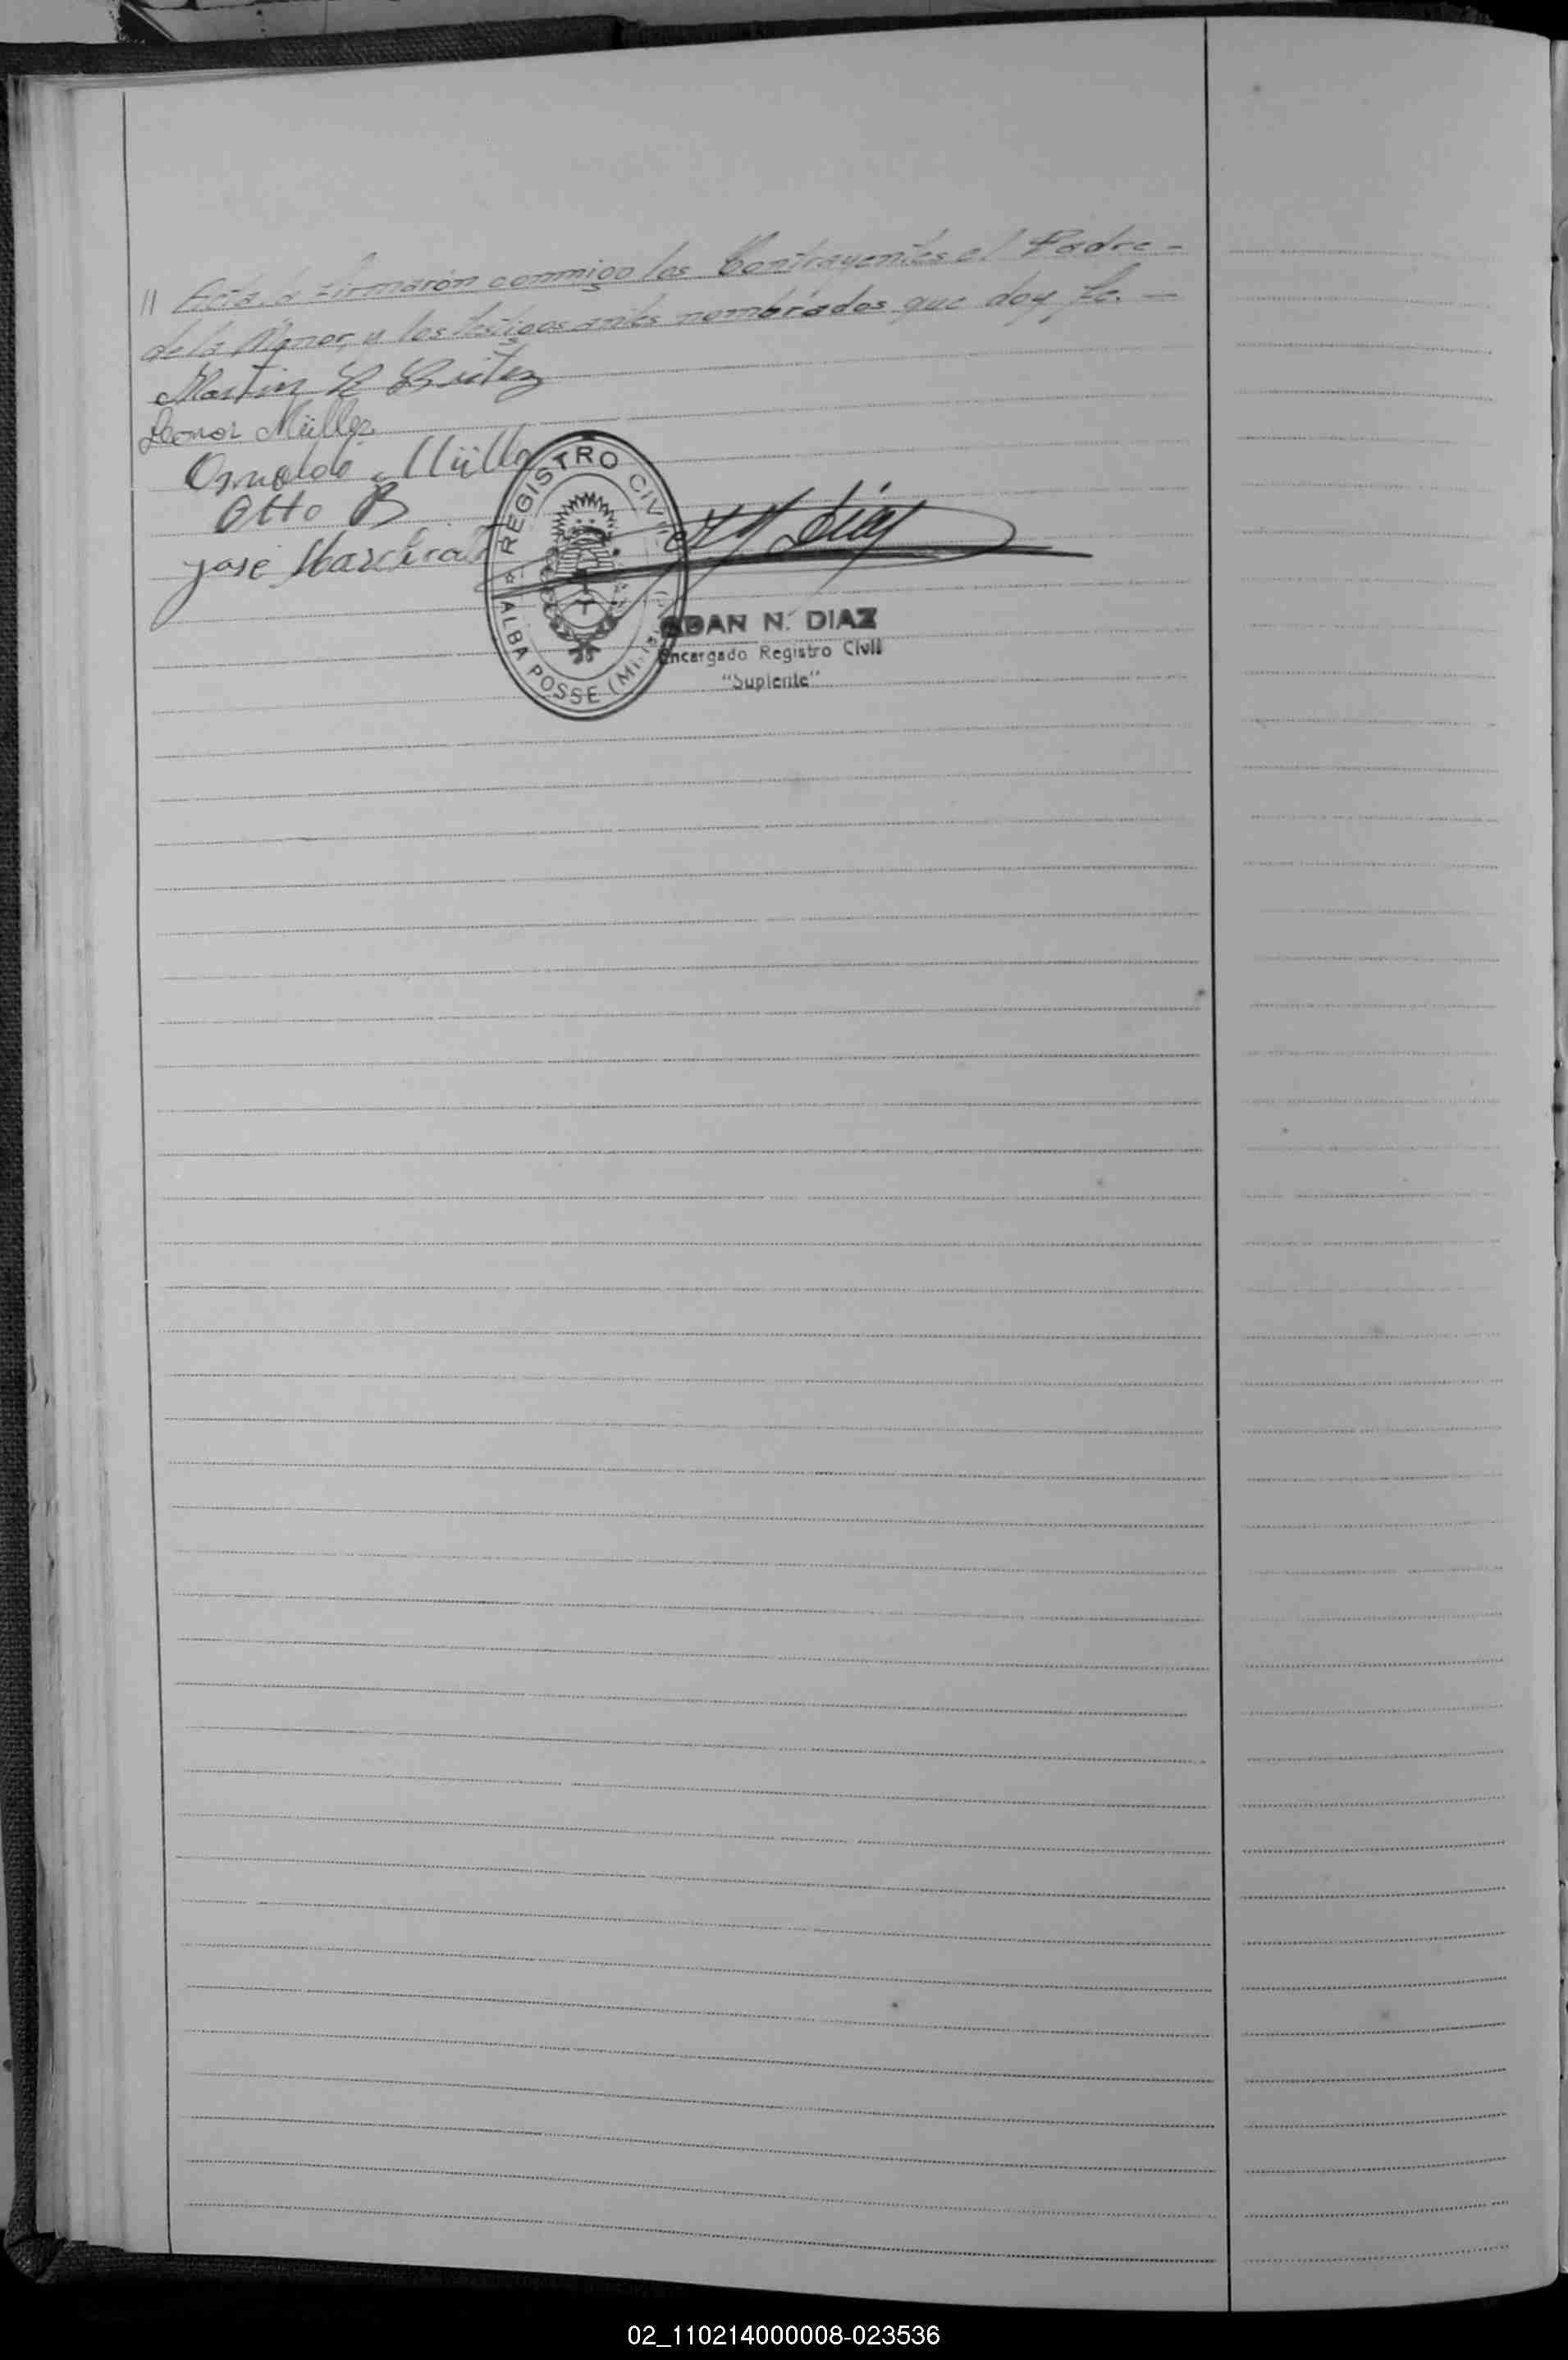 // Acta, a firmarón conmigo los Contrayentes el Padre -
de la Menor, y los testigos antes nombrados que doy fe. -
Martin R Britez
Leonor Müller
Osvaldo Müller
Otto B
José
REGISTRO CIVIL
ALBA POSSE (Mi
Diaz
ADAN N. DIAZ
Encargado Registro Civil
"Suplente"
02_110214000008-023536